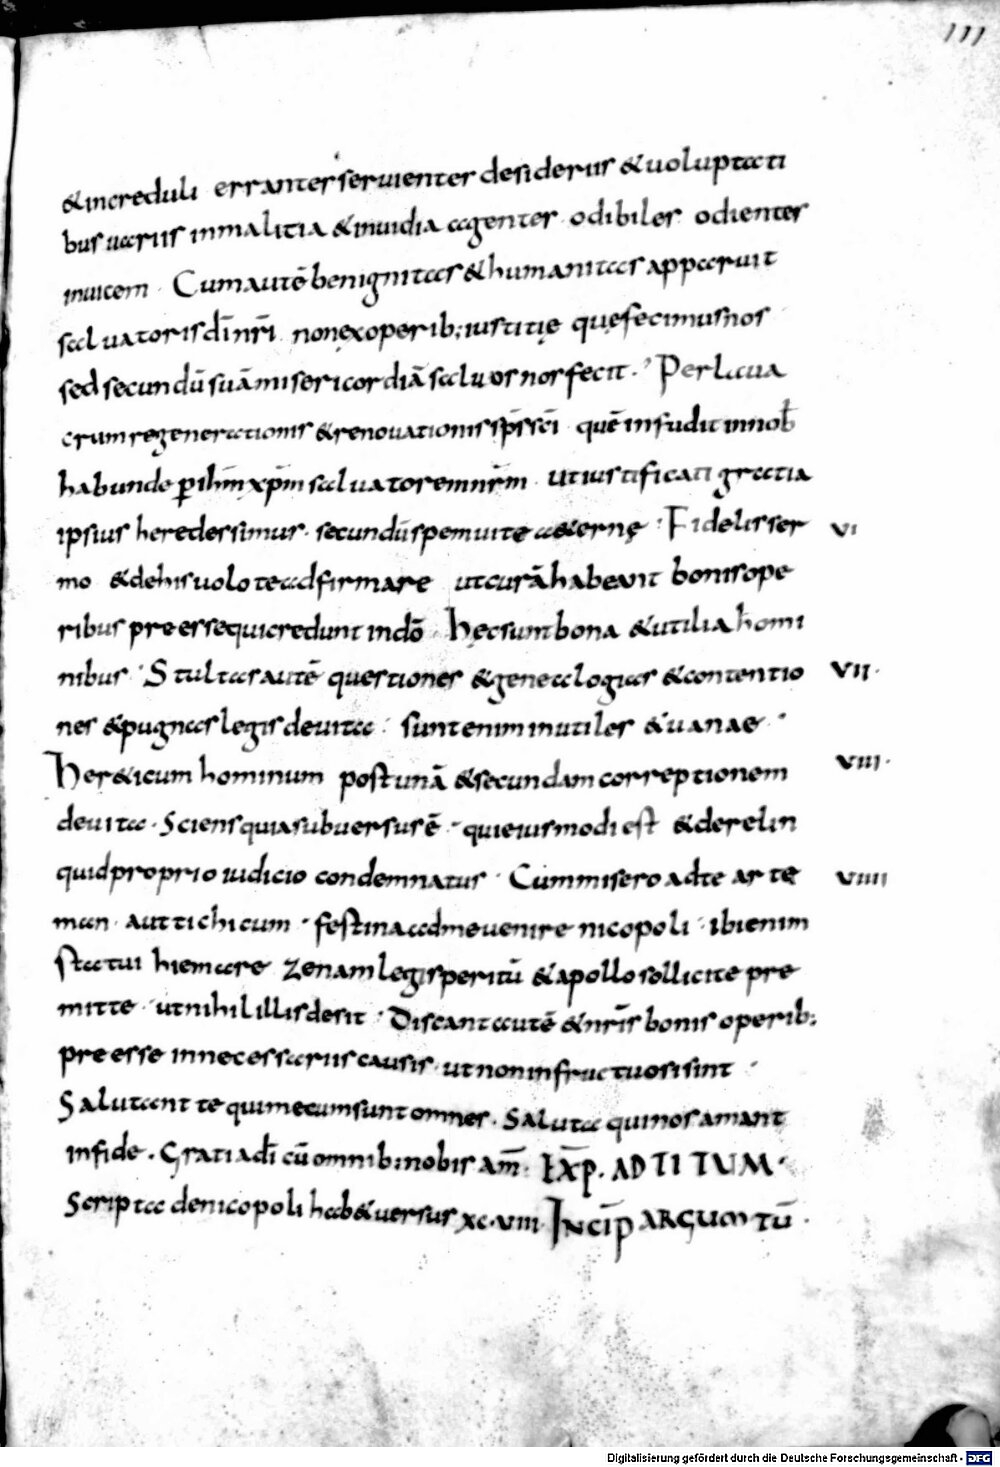 111
&increduli errantes seruientes desideriis &uoluptati
bus uariis inmalitia &inuidia agentes odibiles odientes
inuicem · Cumautē benignitas &humanitas apparuit
saluatoris dī nr̄i nonęxoperib; iustitię quęfecimusnos
sed secundū suā misericordiā saluos nos fecit · Perlaua
crum regenerationis &renouationis sp̄s sc̄i quē infudit innob̄
habunde p ih̄m xp̄m saluatoremnr̄m · utiustificati gratia
ipsius heredes simus · secundū spem uite &ernę · Fidelis ser VI
mo &dehis uolo teadfirmare utcurā habeant bonis ope
ribus preesse qui credunt indō Hęc sunt bona &utilia homi
nibus · Stultas autē questiones &genealogias &contentio VII ·
nes &pugnas legis deuita · sunt enim inutiles &uanae ·
Her&icum hominum post unā &secundam correptionem VIII ·
deuita · Sciens quia subuersus ē · quieiusmodi est &derelin
quid proprio iudicio condemnatus · Cummisero adte arte VIIII
man · aut tichicum · festina adme uenire nicopoli · ibi enim
statui hiemare zenam legisperitū &apollo sollicite pre
mitte · ut nihil illis desit · Discant autē &nr̄is bonis operib;
preesse innecessariis causis · ut non infructuosi sint ·
Salutant te qui mecum sunt omnes · Saluta qui nos amant
infide · Gratia dī cū omnib; nobis am̄ · EX̄P · AD TITUM ·
Scripta denicopoli hab& uersus xc · viii · INCIP̄ ARGUMTŪ ·
Digitalisierung gefördert durch die Deutsche Forschungsgemeinschaft - DFG